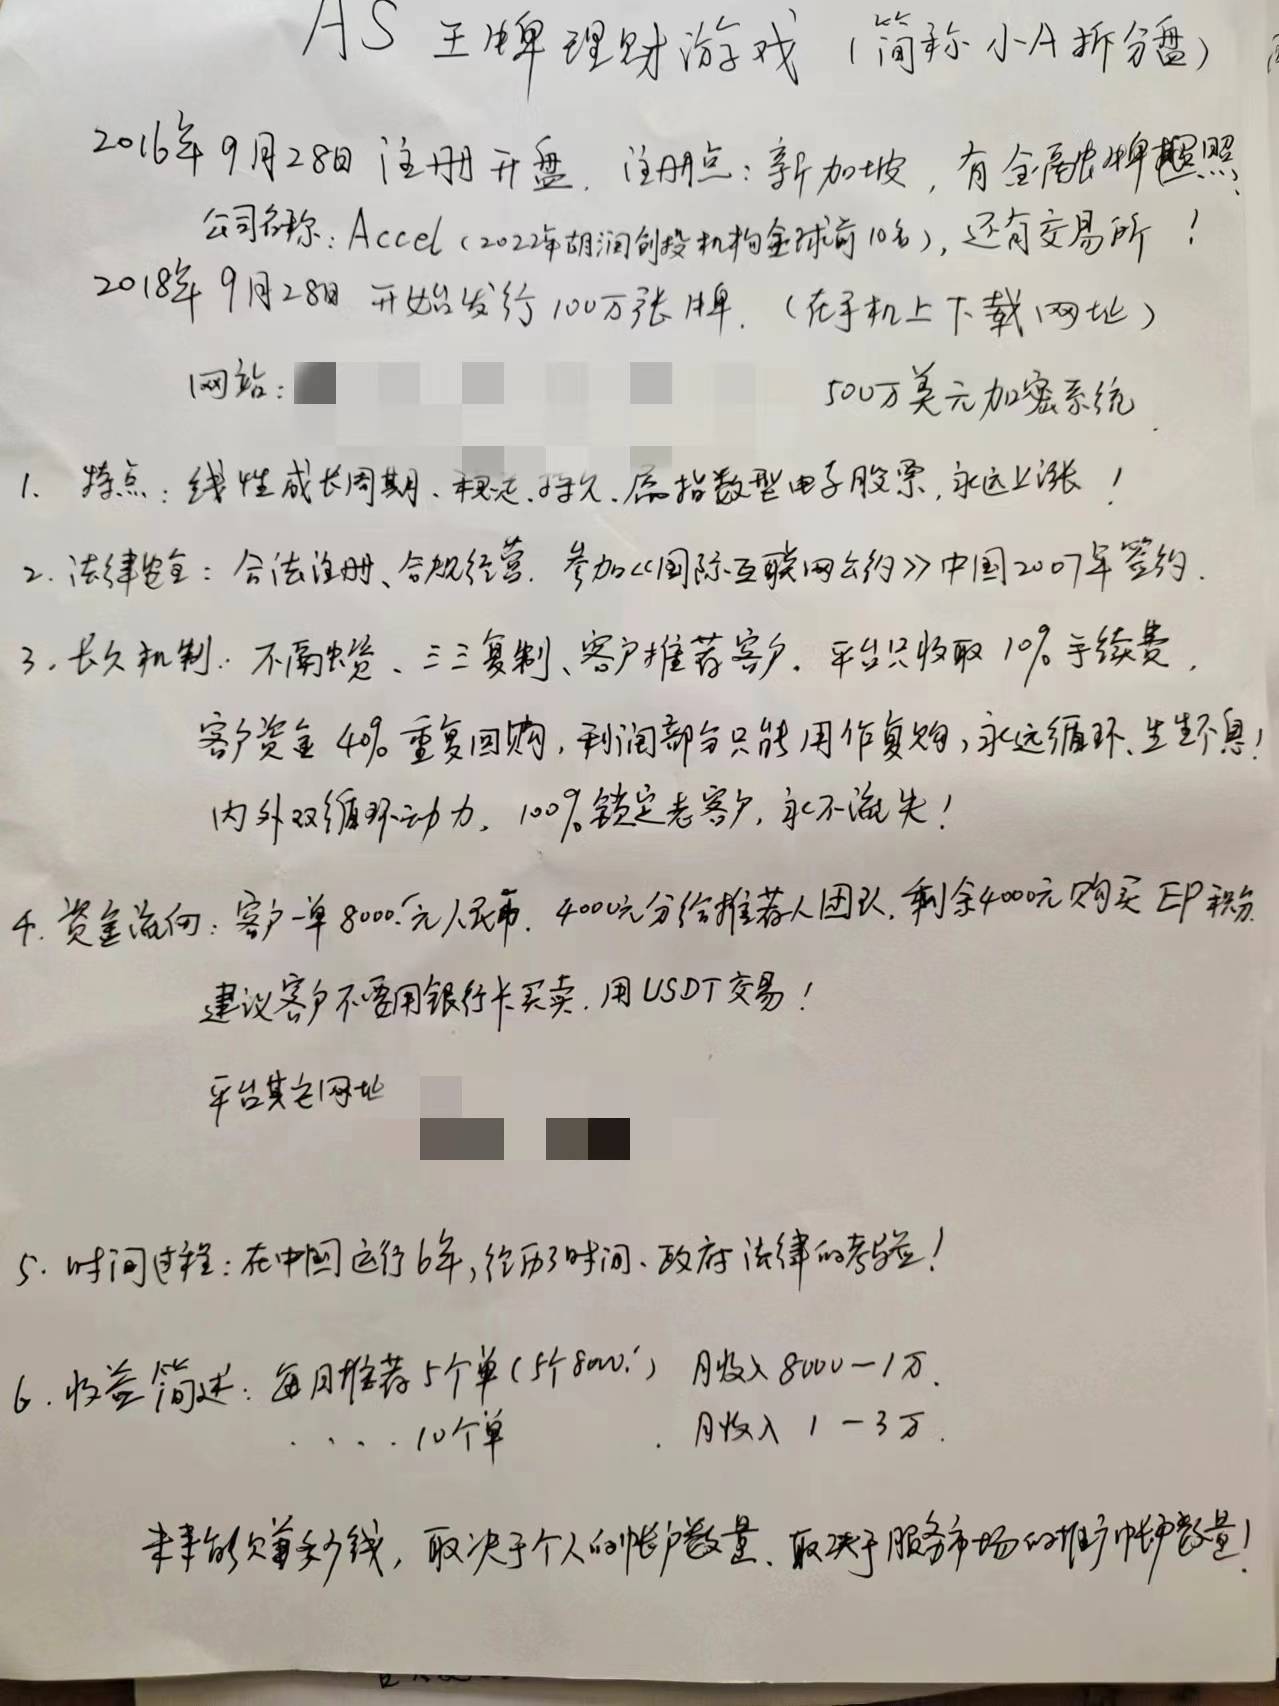 AS 王牌理财游戏（简称小A拆分盘）
2016年9月28日 注册开盘. 注册点：新加坡，有金融牌照、
公司名称：Accel（2022年胡润创投机构全球前10名），还有交易所！
2018年9月28日 开始发行100万张牌.（在手机上下载网址）
网站：
500万美元加密系统.
1. 特点：线性成长周期、稳定、持久、属指数型电子股票，永远上涨！
2. 法律安全：合法注册、合规经营. 参加《国际互联网公约》中国2007年签约.
3. 长久机制：不融资、三三复制、客户推荐客户. 平台只收取10%手续费，
客户资金40%重复回购，利润部分只能用作复购，永远循环、生生不息！
内外双循环动力、100%锁定老客户，永不流失！
4. 资金流向：客户一单8000元人民币. 4000元分给推荐人团队. 剩余4000元购买EP积分
建议客户不要用银行卡买卖. 用USDT交易！
平台其它网址
5. 时间过程：在中国运行6年，经历了时间、政府法律的考验！
6. 收益简述：每月推荐5个单（5个8000）月收入8000一1万.
. . . . 10个单 . 月收入 1 一 3万.
未来能赚多少钱，取决于个人的帐户数量、取决于服务市场的推广帐户数量！